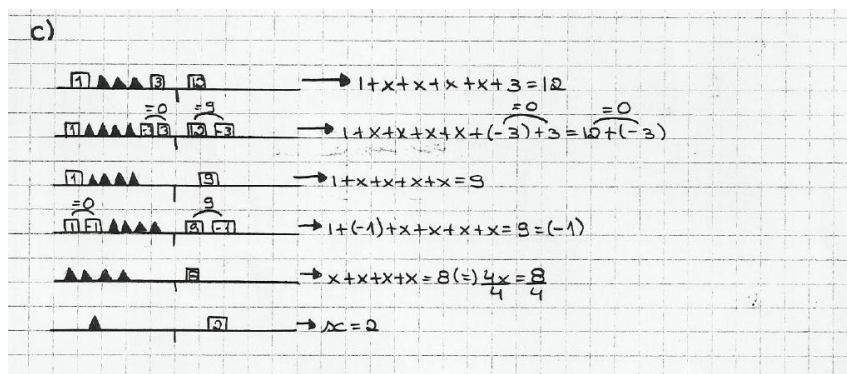 c)
1 ▲▲▲▲ 3 12 → 1+x+x+x+x+3=12
=0 =9 =0 =0
1 ▲▲▲▲ -3 3 12 -3 → 1+x+x+x+x+(-3)+3=12+(-3)
1 ▲▲▲▲ 9 → 1+x+x+x+x=9
=0 9
1 -1 ▲▲▲▲ 9 -1 → 1+(-1)+x+x+x+x=9=(-1)
▲▲▲▲ 8 → x+x+x+x=8(=)4x/4=8/4
▲ 2 → x=2